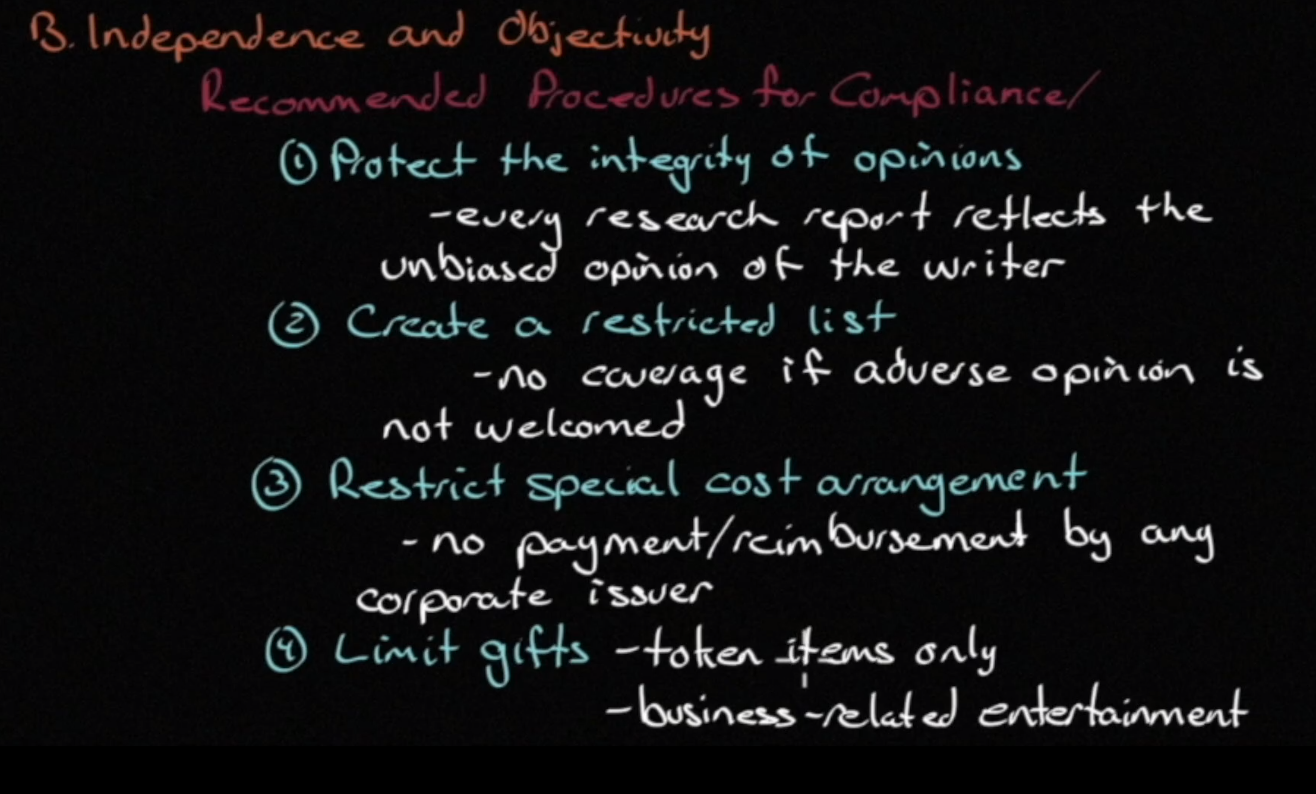 B. Independence and Objectivity
Recommended Procedures for Compliance/
① Protect the integrity of opinions
-every research report reflects the
unbiased opinion of the writer
② Create a restricted list
-no coverage if adverse opinion is
not welcomed
③ Restrict special cost arrangement
- no payment/reimbursement by any
corporate issuer
④ Limit gifts -token items only
-business-related entertainment